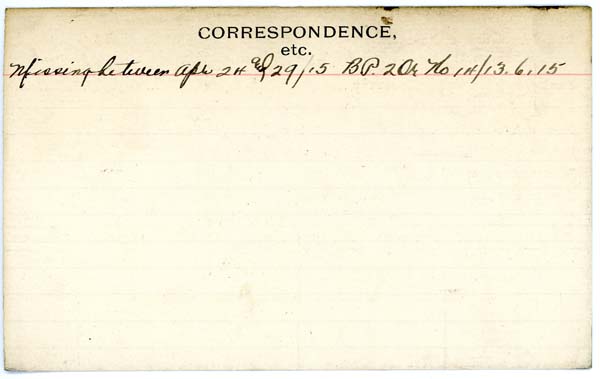 CORRESPONDENCE,
etc.
Missing between Apr 24 & 29/15 B.P. 2 Or No 14/13.6.15